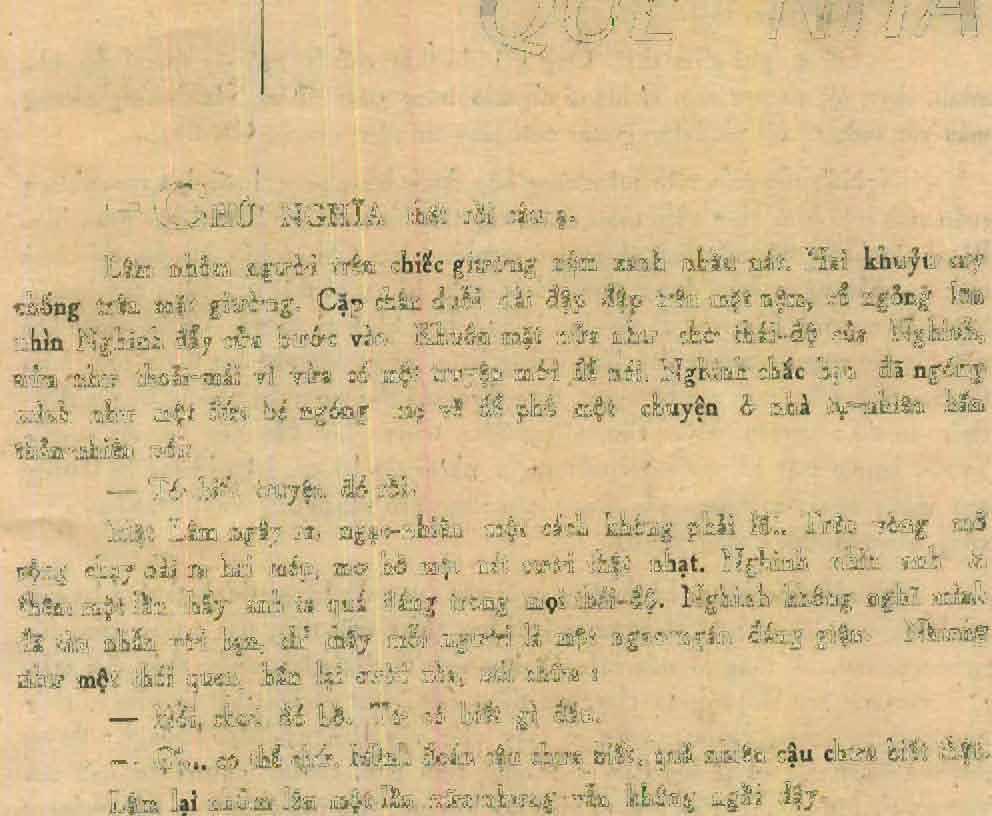 QUÊ NHÀ
— CHÚ NGHĨA chết rồi cậu ạ.
Lâm nhổm người trên chiếc giường nệm xanh nhàu nát. Hai khuỷu tay
chống trên mặt giường. Cặp chân duỗi dài đập đập trên mặt nệm, cổ ngỏng lên
nhìn Nghinh đẩy cửa bước vào. Khuôn mặt nửa như chờ thái-độ của Nghinh,
nửa như thoải-mái vì vừa có một truyện mới để nói. Nghinh chắc bạn đã ngóng
mình như một đứa bé ngóng mẹ về để phô một chuyện ở nhà tự-nhiên hắn
thản-nhiên nói:
— Tớ biết truyện đó rồi.
Mặt Lâm ngây ra, ngạc-nhiên một cách không phải lối. Tròn vòng mở
rộng chạy dài ra hai mép, mơ hồ một nét cười thật nhạt. Nghinh nhìn anh ta
thêm một lần thấy anh ta quá đáng trong mọi thái-độ. Nghinh không nghĩ mình
đã tàn nhẫn với bạn, chỉ thấy mỗi người là một ngao-ngán đáng giận. Nhưng
như một thói quen, hắn lại cười xòa, nói chữa :
— Mới, chơi đó bồ. Tớ có biết gì đâu.
— Ờ... có thế chứ. Mình đoán cậu chưa biết, quả nhiên cậu chưa biết thật.
Lâm lại nhổm lên một lần nữa nhưng vẫn không ngồi dậy.